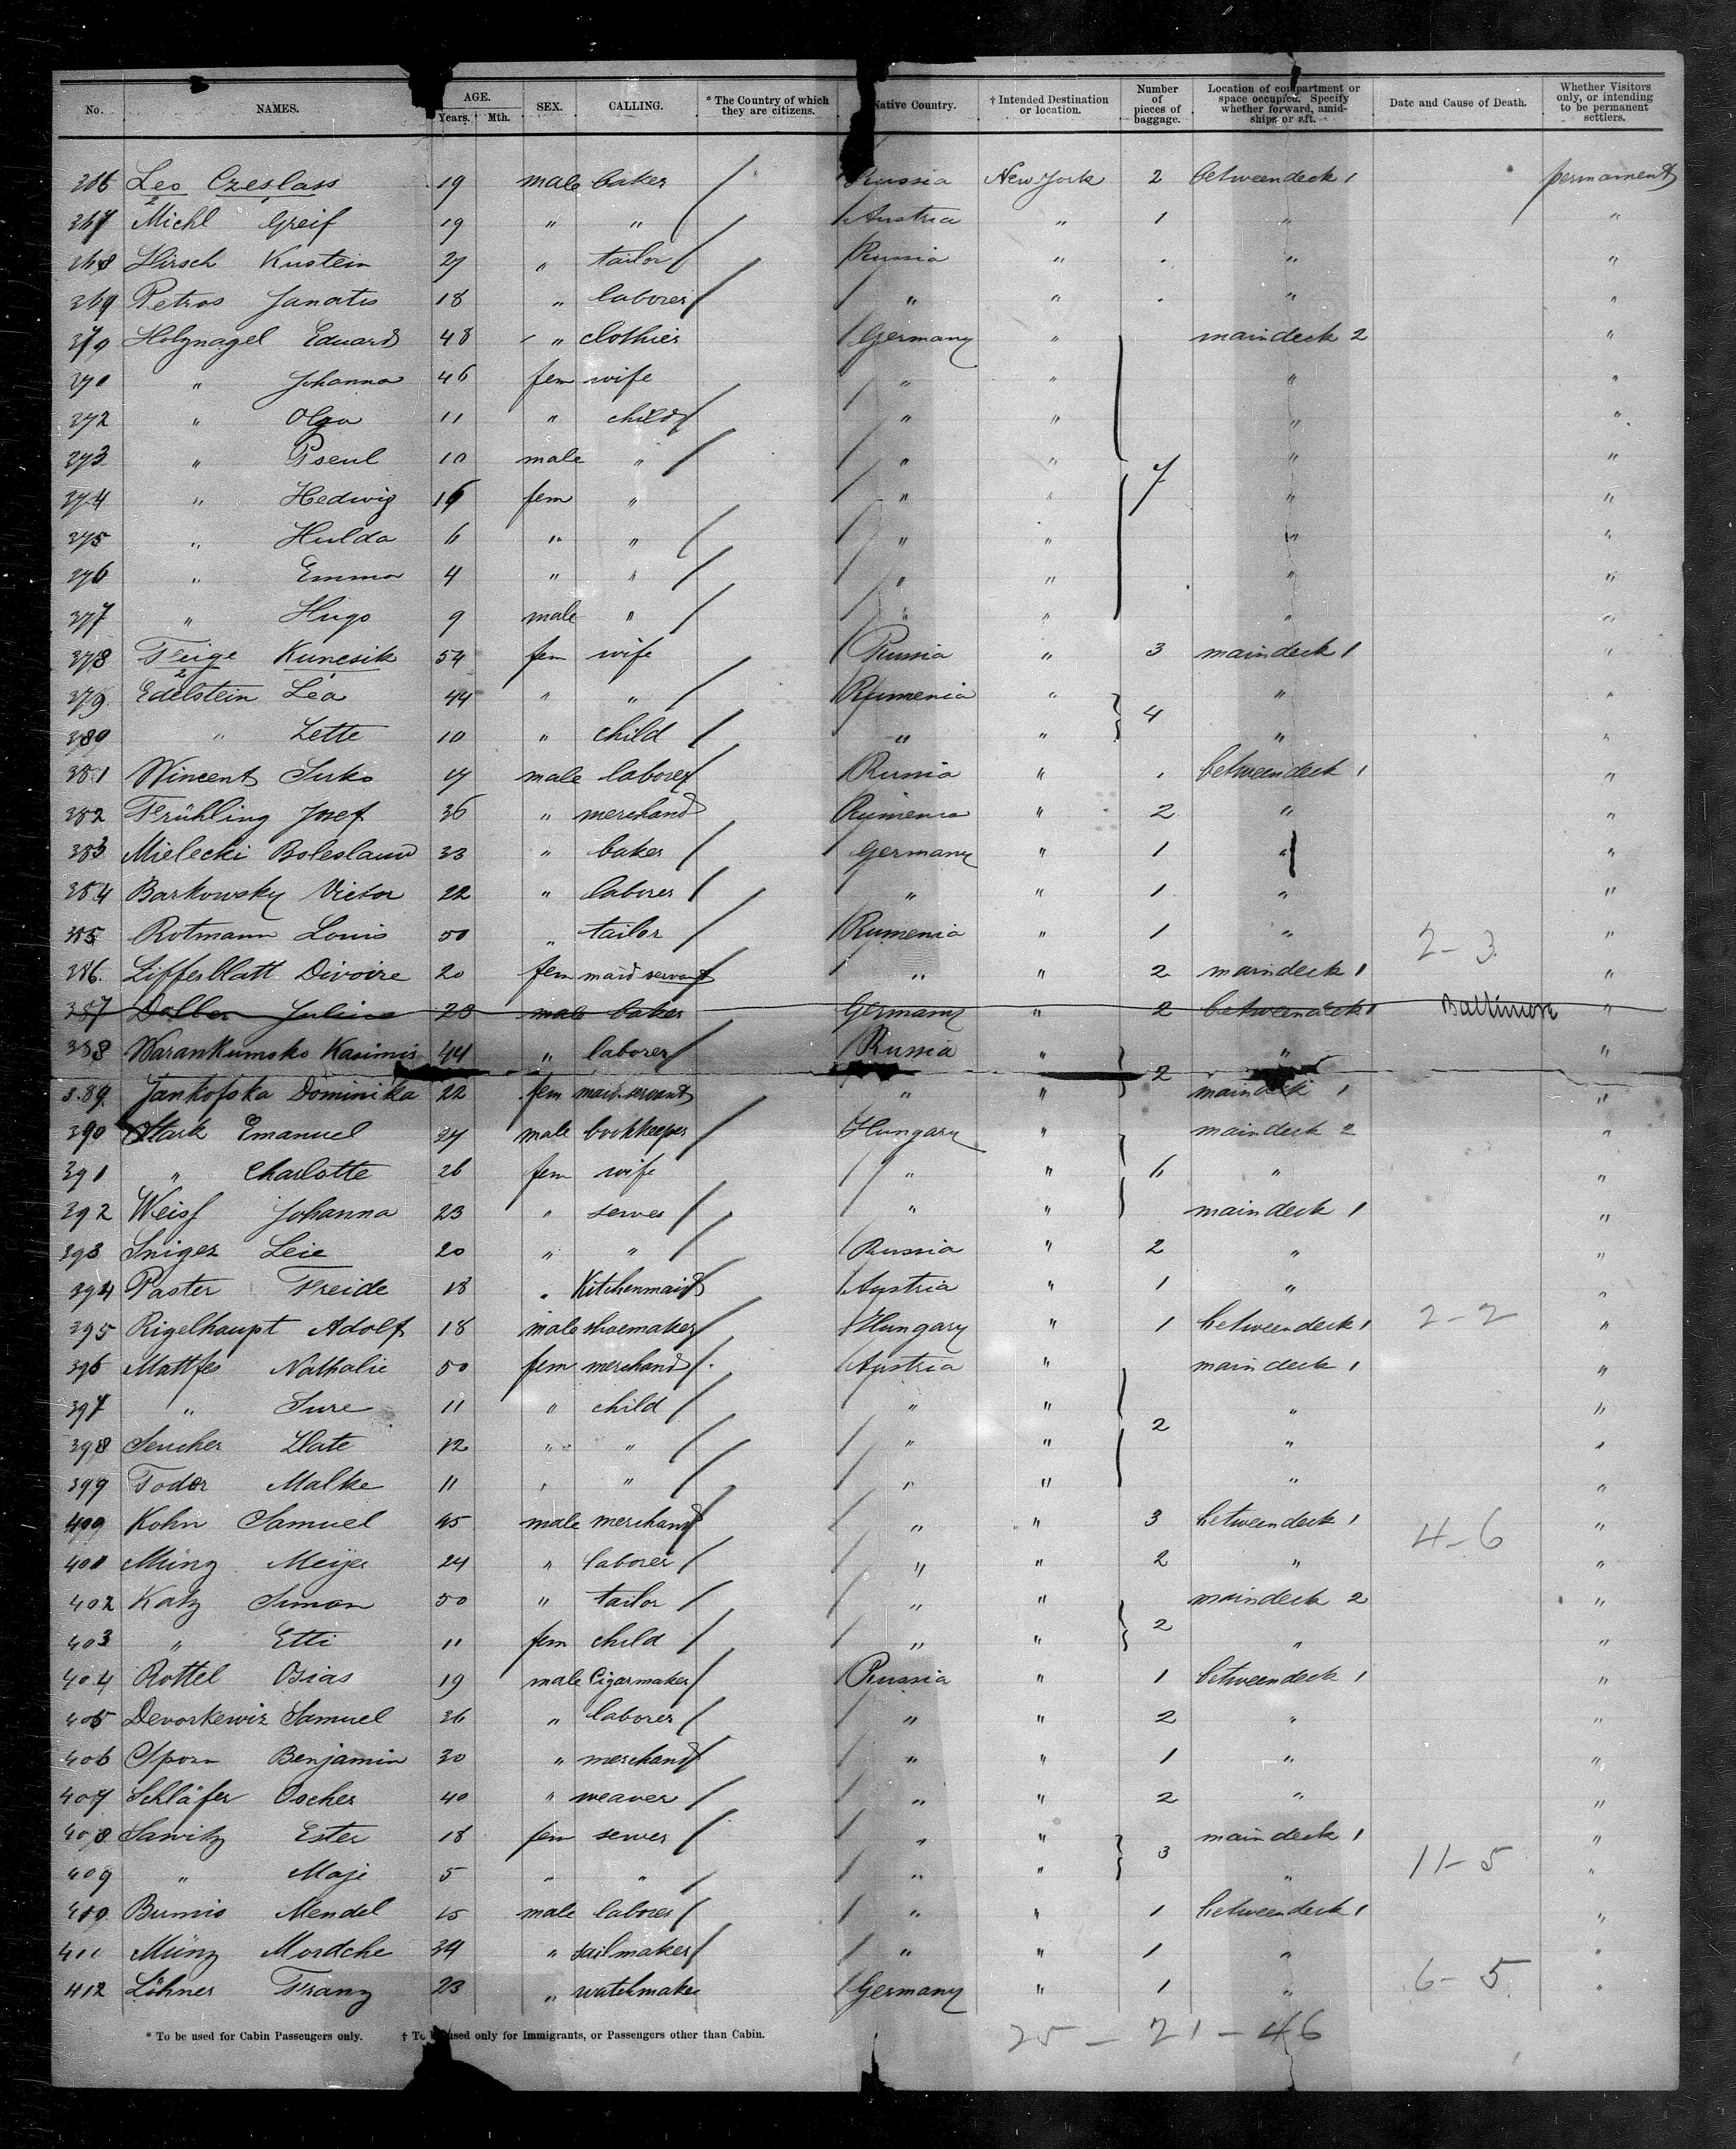 No. NAMES. AGE. Years. Mth. SEX. CALLING. * The Country of which they are citizens. Native Country. † Intended Destination or location. Number of pieces of baggage. Location of compartment or space occupied. Specify whether forward, amidships or aft. Date and Cause of Death. Whether Visitors only, or intending to be permanent settlers.
366 Leo Czeslass 19 male baker Russia New York 2 betweendeck 1 permanent
367 Michl Greif 19 " " Austria " 1 " "
368 Hirsch Kustein 27 " tailor Russia " . " "
369 Petros Janatis 18 " laborer " " . " "
370 Holznagel Eduard 48 " clothier Germany " maindeck 2 "
371 " Johanna 46 fem wife " " " "
372 " Olga 11 " child " " " "
373 " Pseul 10 male " " " " "
374 " Hedwig 16 fem " " " 7 " "
375 " Hulda 6 " " " " " "
376 " Emma 4 " " " " " "
377 " Hugo 9 male " " " " "
378 Feige Kuncsik 54 fem wife Russia " 3 maindeck 1 "
379 Edelstein Lea 44 " " Rumenia " 4 " "
380 " Lette 10 " child " " " "
381 Wincent Surko 17 male laborer Russia " . betweendeck 1 "
382 Frühling Josef 36 " merchand Rumenia " 2 " "
383 Mielecki Boleslaum 33 " baker Germany " 1 " "
384 Barkowsky Victor 22 " laborer " " 1 " "
385 Rotmann Louis 50 " tailor Rumenia " 1 " 2-3 "
386 Zifferblatt Divoire 20 fem maid servant " " 2 maindeck 1 "
387 Doller Julius 23 male baker Germany " 2 betweendeck 1 Baltimore "
388 Warankumsko Kasimir 44 " laborer Russia " 2 " "
389 Jankofska Dominika 22 fem maid servant " " maindeck 1 "
390 Stark Emanuel 27 male bookkeeper Hungary " maindeck 2 "
391 " Charlotte 26 fem wife " " 6 " "
392 Weisf Johanna 23 " serves " " maindeck 1 "
393 Sniger Leie 20 " " Russia " 2 " "
394 Paster Freide 18 " Kitchenmaid Austria " 1 " "
395 Rigelhaupt Adolf 18 male shoemaker Hungary " 1 betweendeck 1 2-2 "
396 Mattfes Nathalie 50 fem merchand Austria " maindeck 1 "
397 " Sure 11 " child " " 2 " "
398 Seucher Llate 12 " " " " " "
399 Fodor Malke 11 " " " " " "
400 Kohn Samuel 45 male merchand " " 3 betweendeck 1 4-6 "
401 Münz Meijer 24 " laborer " " 2 " "
402 Katz Simon 50 " tailor " " 2 maindeck 2 "
403 " Etti 11 fem child " " " "
404 Rottel Osias 19 male Cigarmaker Russia " 1 betweendeck 1 "
405 Devorkewiz Samuel 36 " laborer " " 2 " "
406 Sporn Benjamin 30 " merchand " " 1 " "
407 Schläfer Oscher 40 " weaver " " 2 " "
408 Sawitz Ester 18 fem sewer " " 3 maindeck 1 "
409 " Maje 5 " " " " " 11-5 "
410 Bumis Mendel 15 male laborer " " 1 betweendeck 1 "
411 Münz Mordche 39 " sailmaker " " 1 " "
412 Löhner Franz 23 " watchmaker Germany " 1 " 6-5 "
* To be used for Cabin Passengers only. † To be used only for Immigrants, or Passengers other than Cabin.
25 - 21 - 46